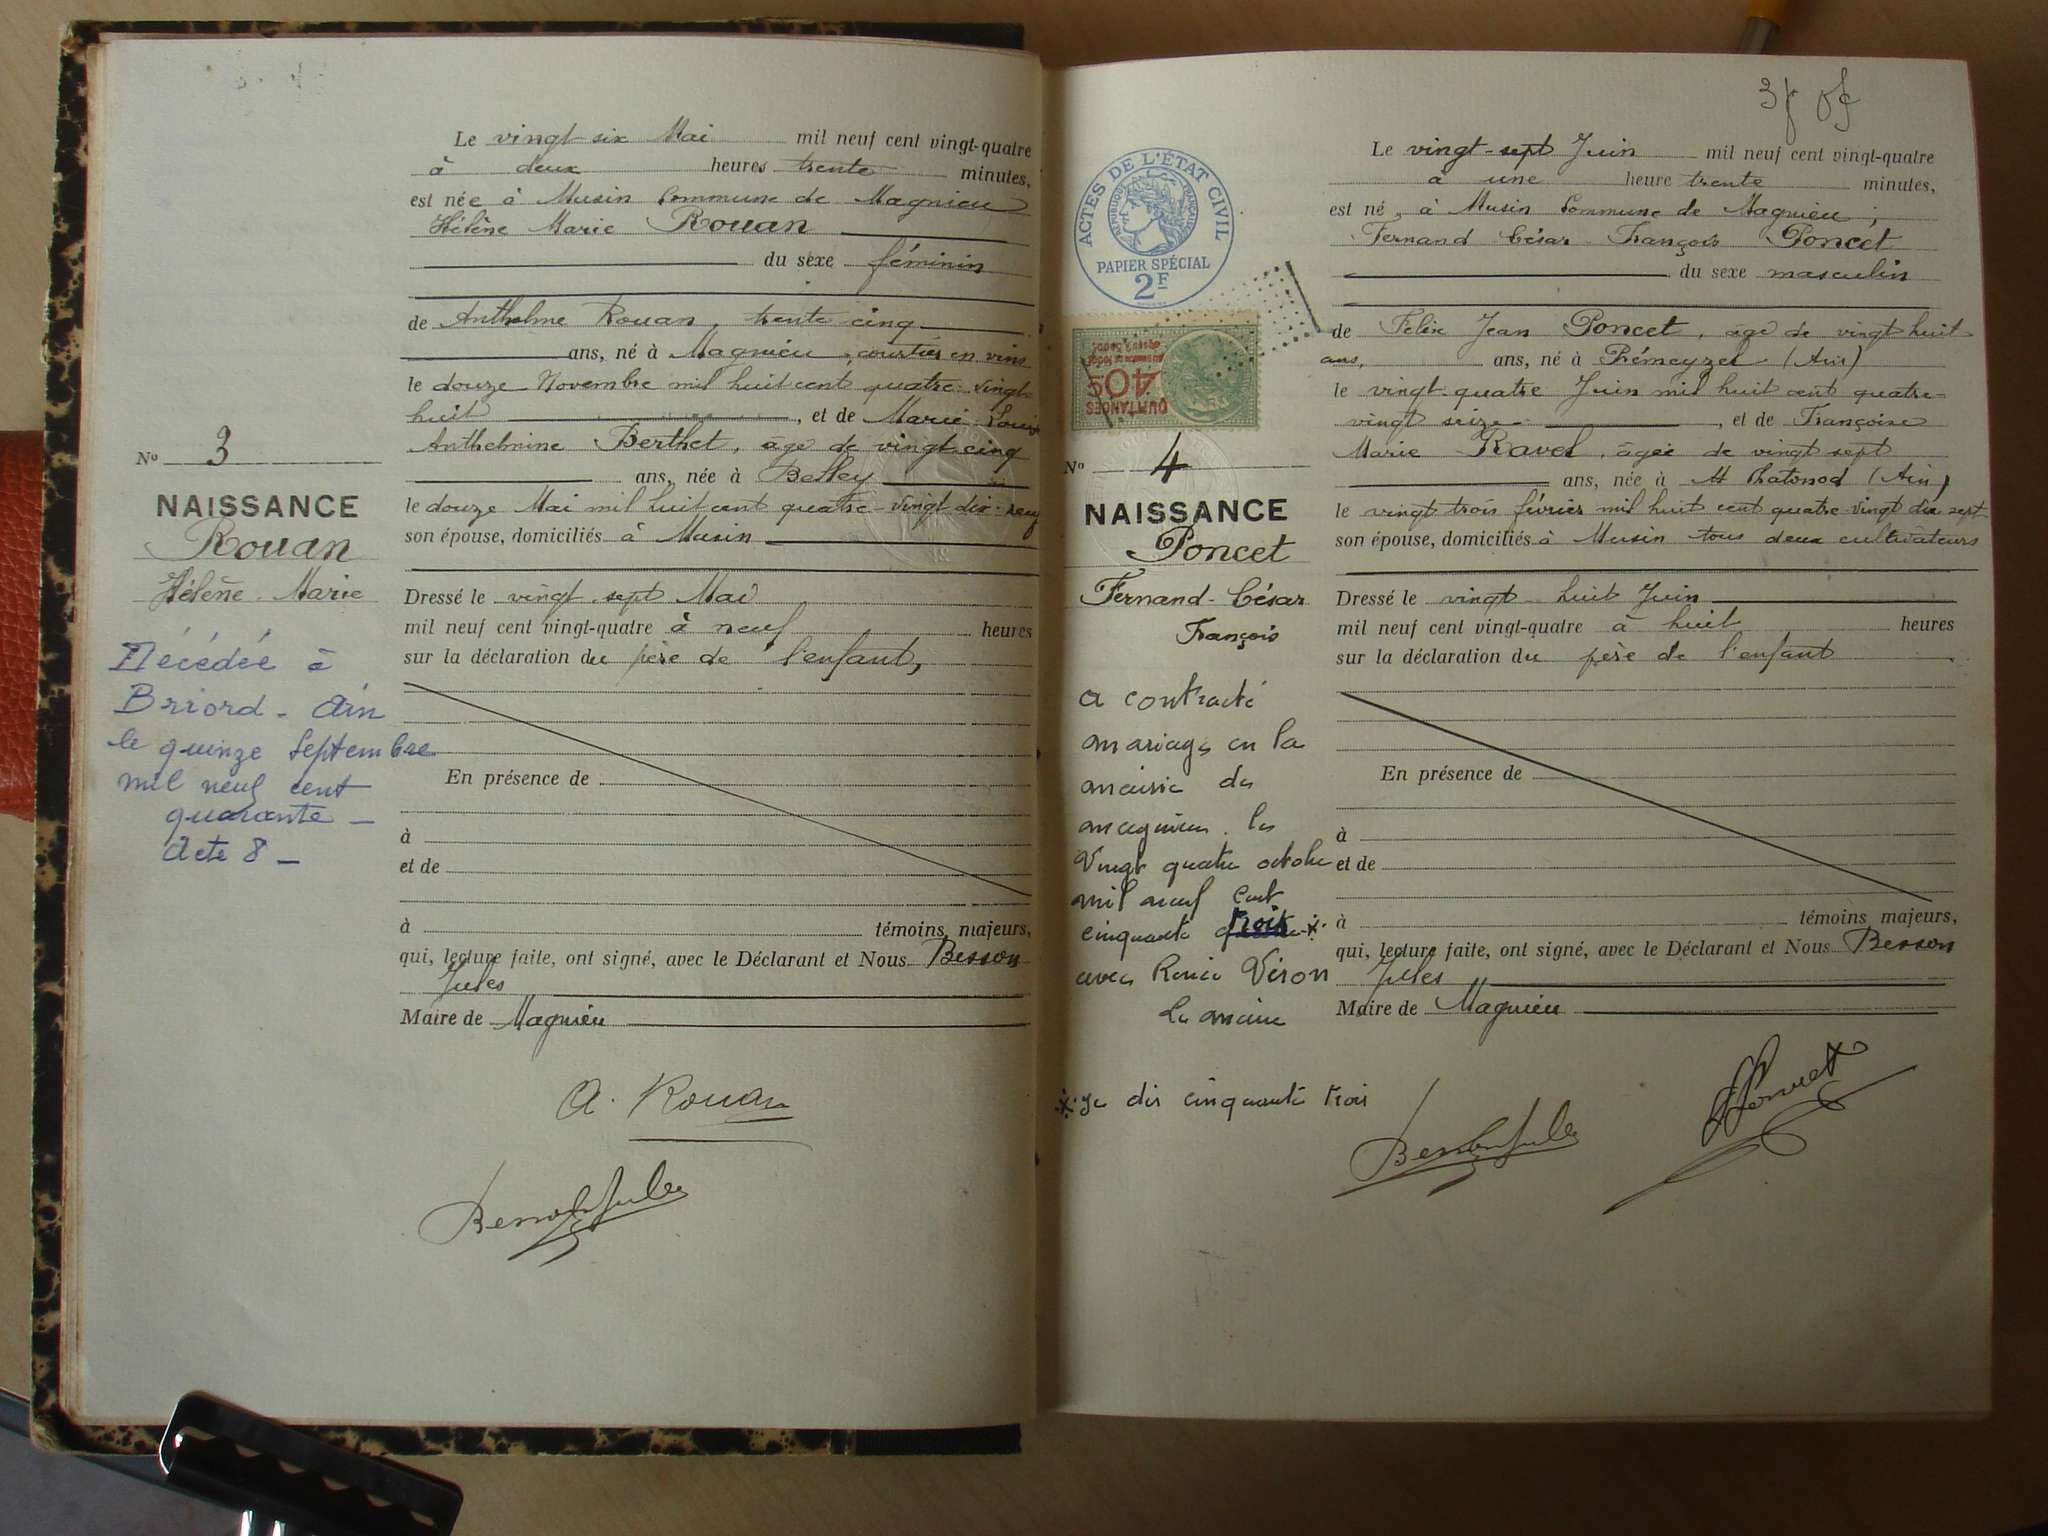 Le vingt-six Mai mil neuf cent vingt-quatre
à deux heures trente minutes,
est née à Musin Commune de Magnieu
Hélène Marie Rouan
du sexe féminin
de Anthelme Rouan, trente cinq
ans, né à Magnieu, courtier en vins
le douze Novembre mil huit cent quatre-vingt-
huit, et de Marie Louise
Anthelmine Berthet, âgé de vingt cinq
ans, née à Belley
le douze Mai mil huit cent quatre-vingt dix-neuf
son épouse, domiciliés à Musin
Dressé le vingt sept Mai
mil neuf cent vingt-quatre à neuf heures
sur la déclaration du père de l'enfant,
En présence de
à
et de
à témoins majeurs,
qui, lecture faite, ont signé, avec le Déclarant et Nous Besson
Jules
Maire de Magnieu
A. Rouan
Besson Jules
No 3
NAISSANCE
Rouan
Hélène Marie
Décédée à
Briord - Ain
le quinze Septembre
mil neuf cent
quarante -
Acte 8 -
ACTES DE L'ÉTAT CIVIL
RÉPUBLIQUE FRANÇAISE
PAPIER SPÉCIAL
2F
QUITTANCES
40c
No 4
NAISSANCE
Poncet
Fernand-César
François
a contracté
mariage en la
mairie de
magnieu le
Vingt quatre octobre
mil neuf cent
cinquante trois *
avec Renée Véron
Le maire
* je dis cinquante trois
Le vingt-sept Juin mil neuf cent vingt-quatre
à une heure trente minutes,
est né, à Musin Commune de Magnieu,
Fernand César François Poncet
du sexe masculin
de Félix Jean Poncet, âgé de vingt huit
ans, ans, né à Prémeyzel (Ain)
le vingt quatre Juin mil huit cent quatre-
vingt seize, et de Françoise
Marie Ravel, âgée de vingt sept
ans, née à (Ain)
le vingt trois février mil huit cent quatre-vingt dix sept
son épouse, domiciliés à Musin tous deux cultivateurs
Dressé le vingt huit Juin
mil neuf cent vingt-quatre à huit heures
sur la déclaration du père de l'enfant
En présence de
à
et de
à témoins majeurs,
qui, lecture faite, ont signé, avec le Déclarant et Nous Besson
Jules
Maire de Magnieu
Besson Jules
Poncet